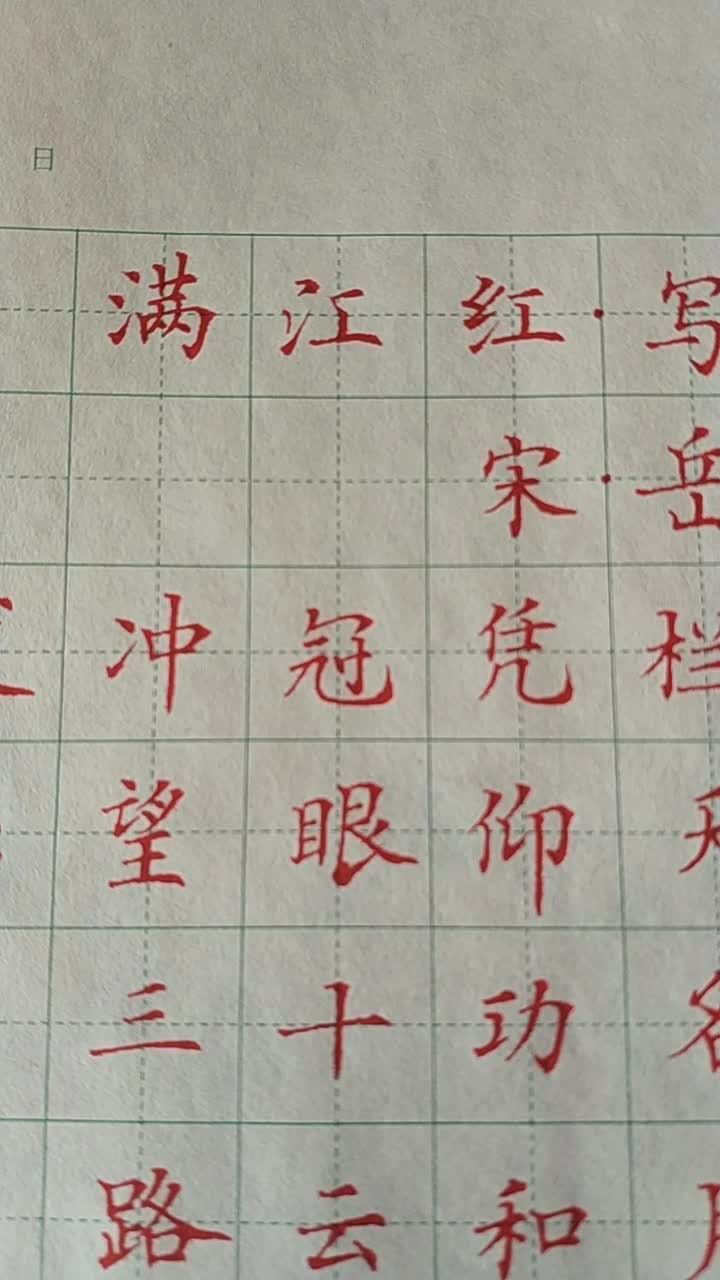 日
满江红·写
宋·岳
冲冠凭栏
望眼仰
三十功名
路云和月